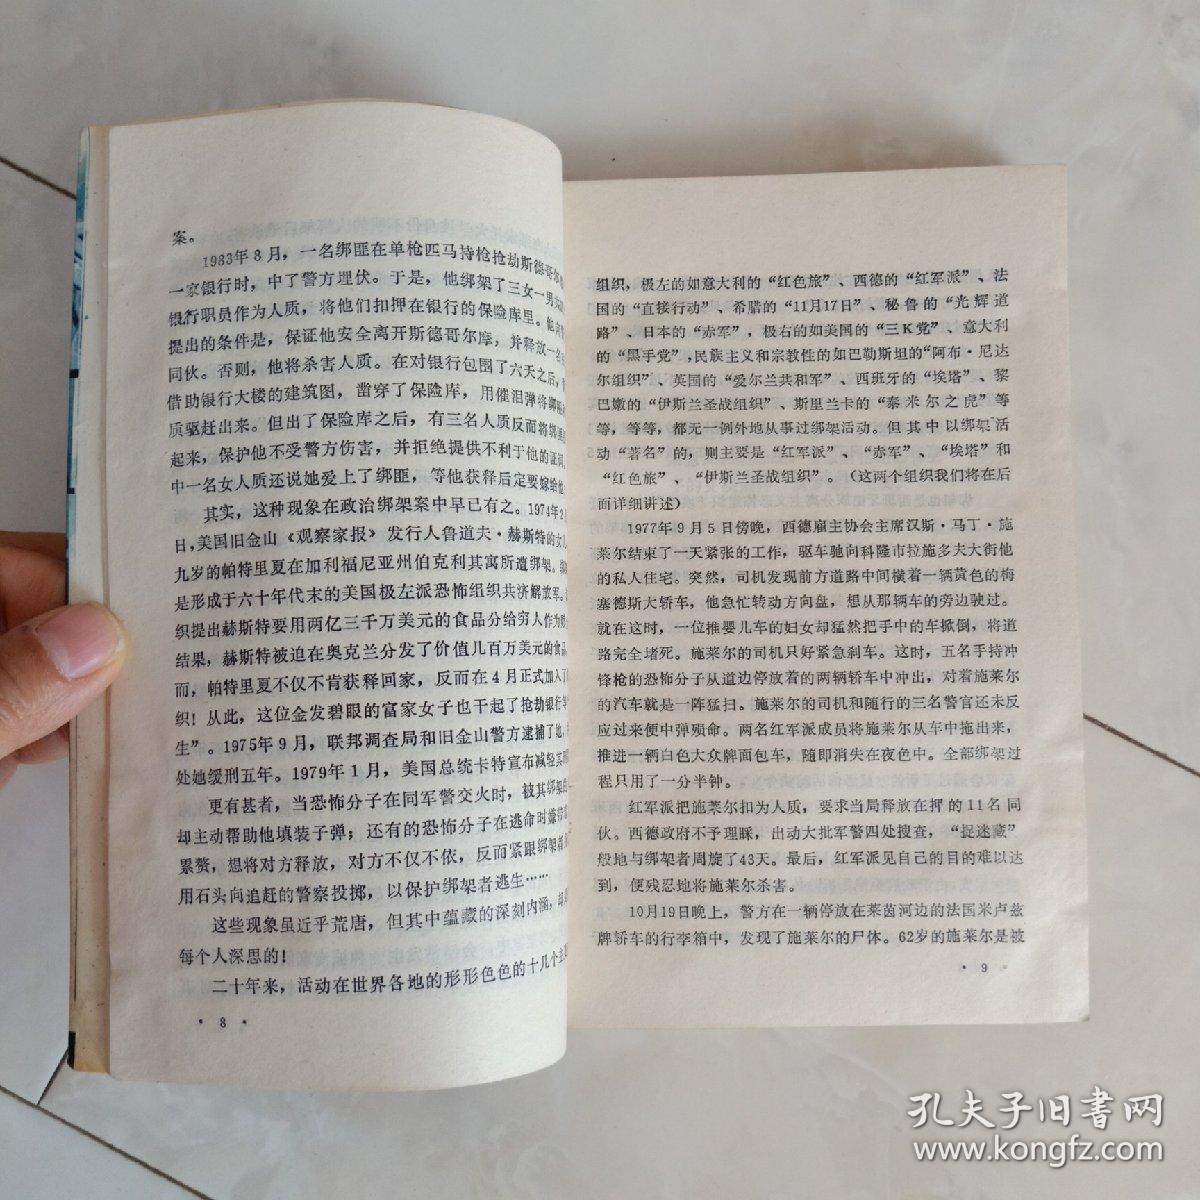 案。
1983年8月，一名绑匪在单枪匹马持枪抢劫斯德哥尔
一家银行时，中了警方埋伏。于是，他绑架了三女一男
银行职员作为人质，将他们扣押在银行的保险库里。他
提出的条件是，保证他安全离开斯德哥尔摩，并释放一名
同伙。否则，他将杀害人质。在对银行包围了六天之后，
借助银行大楼的建筑图，凿穿了保险库，用催泪弹将绑
质驱赶出来。但出了保险库之后，有三名人质反而将绑
起来，保护他不受警方伤害，并拒绝提供不利于他的证词
中一名女人质还说她爱上了绑匪，等他获释后定要嫁给他
其实，这种现象在政治绑架案中早已有之。1974年2
日，美国旧金山《观察家报》发行人鲁道夫·赫斯特的女
九岁的帕特里夏在加利福尼亚州伯克利其寓所遭绑架。
是形成于六十年代末的美国极左派恐怖组织共济解放军。
织提出赫斯特要用两亿三千万美元的食品分给穷人作为
结果，赫斯特被迫在奥克兰分发了价值几百万美元的食品
而，帕特里夏不仅不肯获释回家，反而在4月正式加入了
织！从此，这位金发碧眼的富家女子也干起了抢劫银行
生”。1975年9月，联邦调查局和旧金山警方逮捕了她，
处她缓刑五年。1979年1月，美国总统卡特宣布减轻其
更有甚者，当恐怖分子在同军警交火时，被其绑架的
却主动帮助他填装子弹；还有的恐怖分子在逃命时嫌
累赘，想将对方释放，对方不仅不依，反而紧跟绑架
用石头向追赶的警察投掷，以保护绑架者逃生……
这些现象虽近乎荒唐，但其中蕴藏的深刻内涵，却
每个人深思的！
二十年来，活动在世界各地的形形色色的十几个
· 8 ·
组织，极左的如意大利的“红色旅”、西德的“红军派”、法
国的“直接行动”、希腊的“11月17日”、秘鲁的“光辉道
路”、日本的“赤军”，极右的如美国的“三K党”、意大利
的“黑手党”，民族主义和宗教性的如巴勒斯坦的“阿布·尼达
尔组织”、英国的“爱尔兰共和军”、西班牙的“埃塔”、黎
巴嫩的“伊斯兰圣战组织”、斯里兰卡的“泰米尔之虎”等
等，等等，都无一例外地从事过绑架活动。但其中以绑架活
动“著名”的，则主要是“红军派”、“赤军”、“埃塔”和
“红色旅”、“伊斯兰圣战组织”。（这两个组织我们将在后
面详细讲述）
1977年9月5日傍晚，西德雇主协会主席汉斯·马丁·施
莱尔结束了一天紧张的工作，驱车驰向科隆市拉施多夫大街他
的私人住宅。突然，司机发现前方道路中间横着一辆黄色的梅
塞德斯大轿车，他急忙转动方向盘，想从那辆车的旁边驶过。
就在这时，一位推婴儿车的妇女却猛然把手中的车掀倒，将道
路完全堵死。施莱尔的司机只好紧急刹车。这时，五名手持冲
锋枪的恐怖分子从道边停放着的两辆轿车中冲出，对着施莱尔
的汽车就是一阵猛扫。施莱尔的司机和随行的三名警官还未反
应过来便中弹殒命。两名红军派成员将施莱尔从车中拖出来，
推进一辆白色大众牌面包车，随即消失在夜色中。全部绑架过
程只用了一分半钟。
红军派把施莱尔扣为人质，要求当局释放在押的11名同
伙。西德政府不予理睬，出动大批军警四处搜查，“捉迷藏”
般地与绑架者周旋了43天。最后，红军派见自己的目的难以达
到，便残忍地将施莱尔杀害。
10月19日晚上，警方在一辆停放在莱茵河边的法国米卢兹
牌轿车的行李箱中，发现了施莱尔的尸体。62岁的施莱尔是被
· 9 ·
孔夫子旧书网
www.kongfz.com